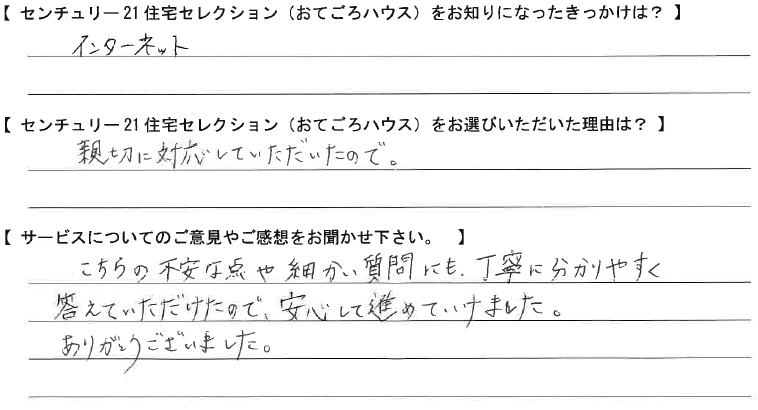 【 センチュリー21住宅セレクション（おてごろハウス）をお知りになったきっかけは？ 】
インターネット
【 センチュリー21住宅セレクション（おてごろハウス）をお選びいただいた理由は？ 】
親切に対応していただいたので。
【 サービスについてのご意見やご感想をお聞かせ下さい。 】
こちらの不安な点や細かい質問にも、丁寧に分かりやすく
答えていただけたので、安心して進めていけました。
ありがとうございました。